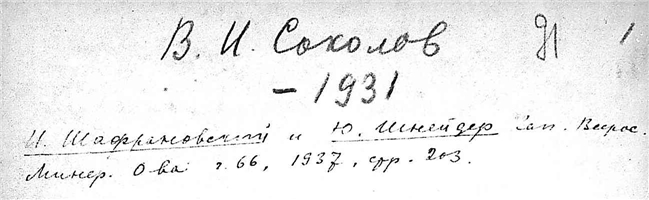 В. И. Соколов 1
– 1931
И. Шафрановский и Ю. Шнейдер Зап. Всерос.
Минер. О-ва т. 66, 1937, стр. 203.